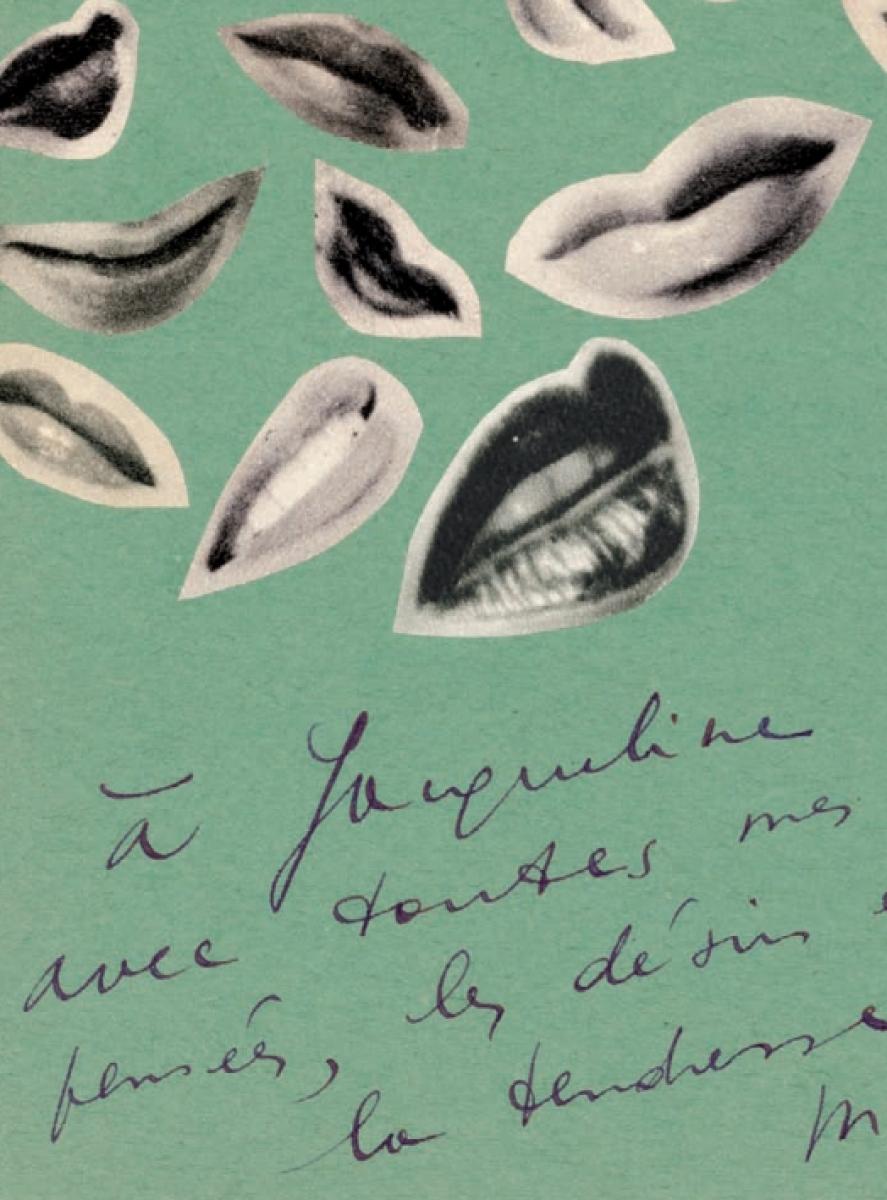 à Jacqueline
avec toutes mes
pensées, les désirs
la tendresse